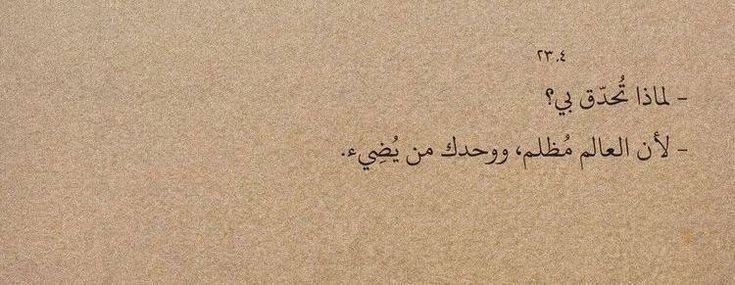 ٢٣.٤
- لماذا تُحدّق بي؟
- لأن العالم مُظلم، ووحدك من يُضِيء.